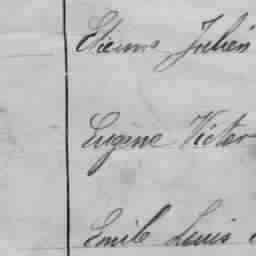 Etienne Julien
Eugène Victor
Emile Louis